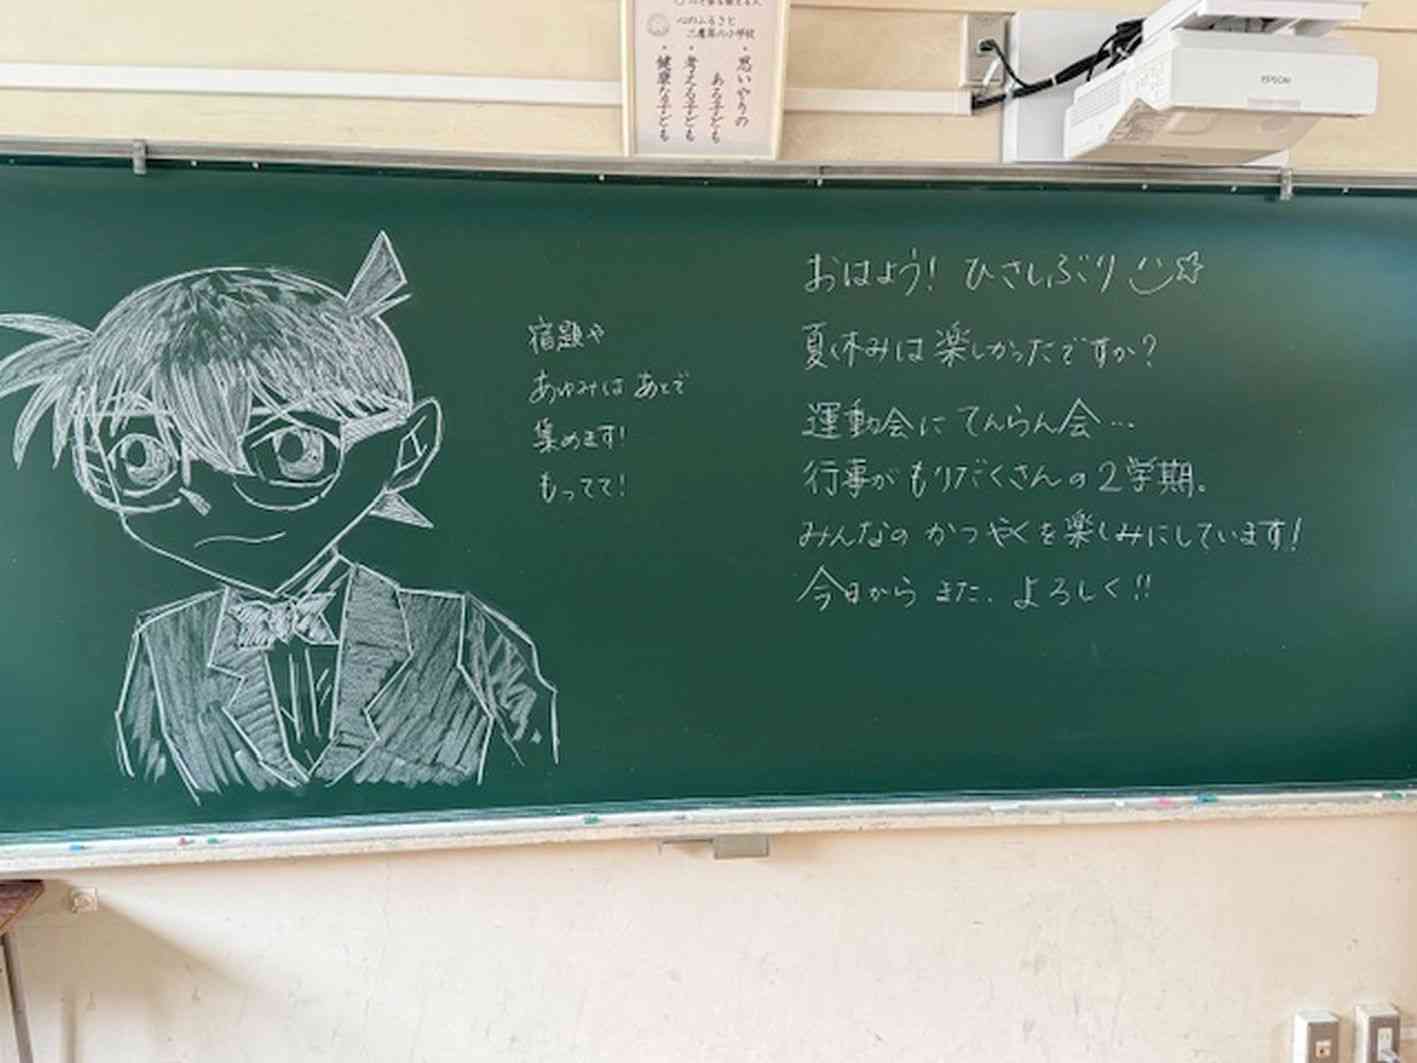 心のふるさと
三鷹第六小学校
・思いやりの
ある子ども
・考える子ども
・健康な子ども
EPSON
おはよう! ひさしぶり
夏休みは楽しかったですか?
運動会にてんらん会…
行事がもりだくさんの2学期。
みんなのかつやくを楽しみにしています!
今日からまた、よろしく!!
宿題や
あゆみはあとで
集めます!
もってて!